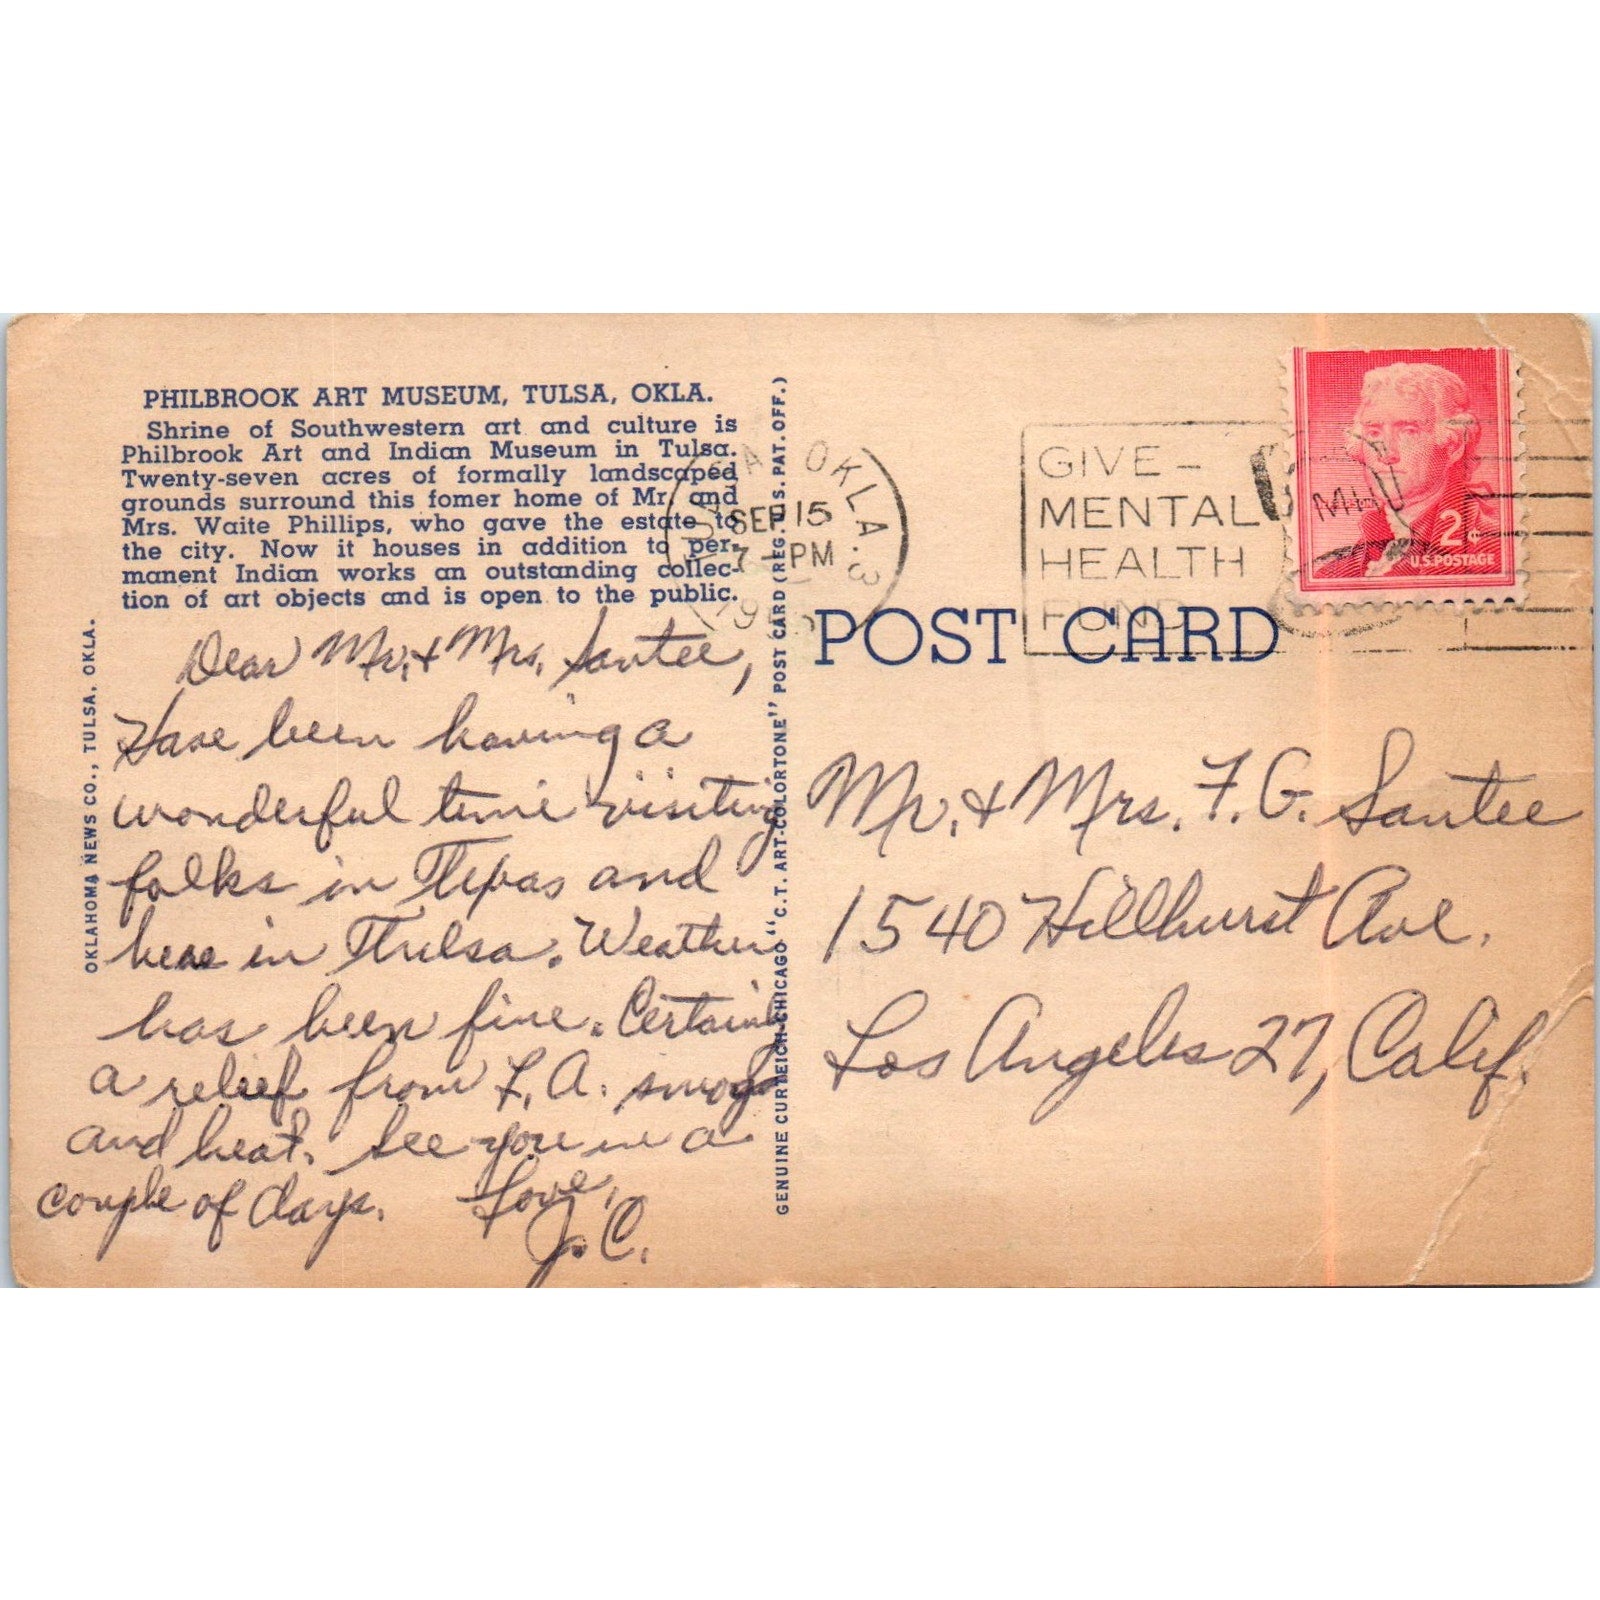 PHILBROOK ART MUSEUM, TULSA, OKLA.
Shrine of Southwestern art and culture is
Philbrook Art and Indian Museum in Tulsa.
Twenty-seven acres of formally landscaped
grounds surround this fomer home of Mr. and
Mrs. Waite Phillips, who gave the estate to
the city. Now it houses in addition to per-
manent Indian works an outstanding collec-
tion of art objects and is open to the public.
OKLAHOMA NEWS CO., TULSA, OKLA.
Dear Mr. & Mrs. Santee,
Have been having a
wonderful time visiting
folks in Texas and
here in Tulsa. Weather
has been fine. Certainly
a relief from L.A. smog
and heat. See you in a
couple of days. Love,
J.C.
GENUINE CURTEICH-CHICAGO "C.T. ART-COLORTONE" POST CARD (REG. U.S. PAT. OFF.)
OKLA. 3
SEP 15
7 - PM
GIVE -
MENTAL
HEALTH
FUND
2¢
U.S. POSTAGE
POST CARD
Mr. & Mrs. F. G. Santee
1540 Hillhurst Ave.
Los Angeles 27, Calif.